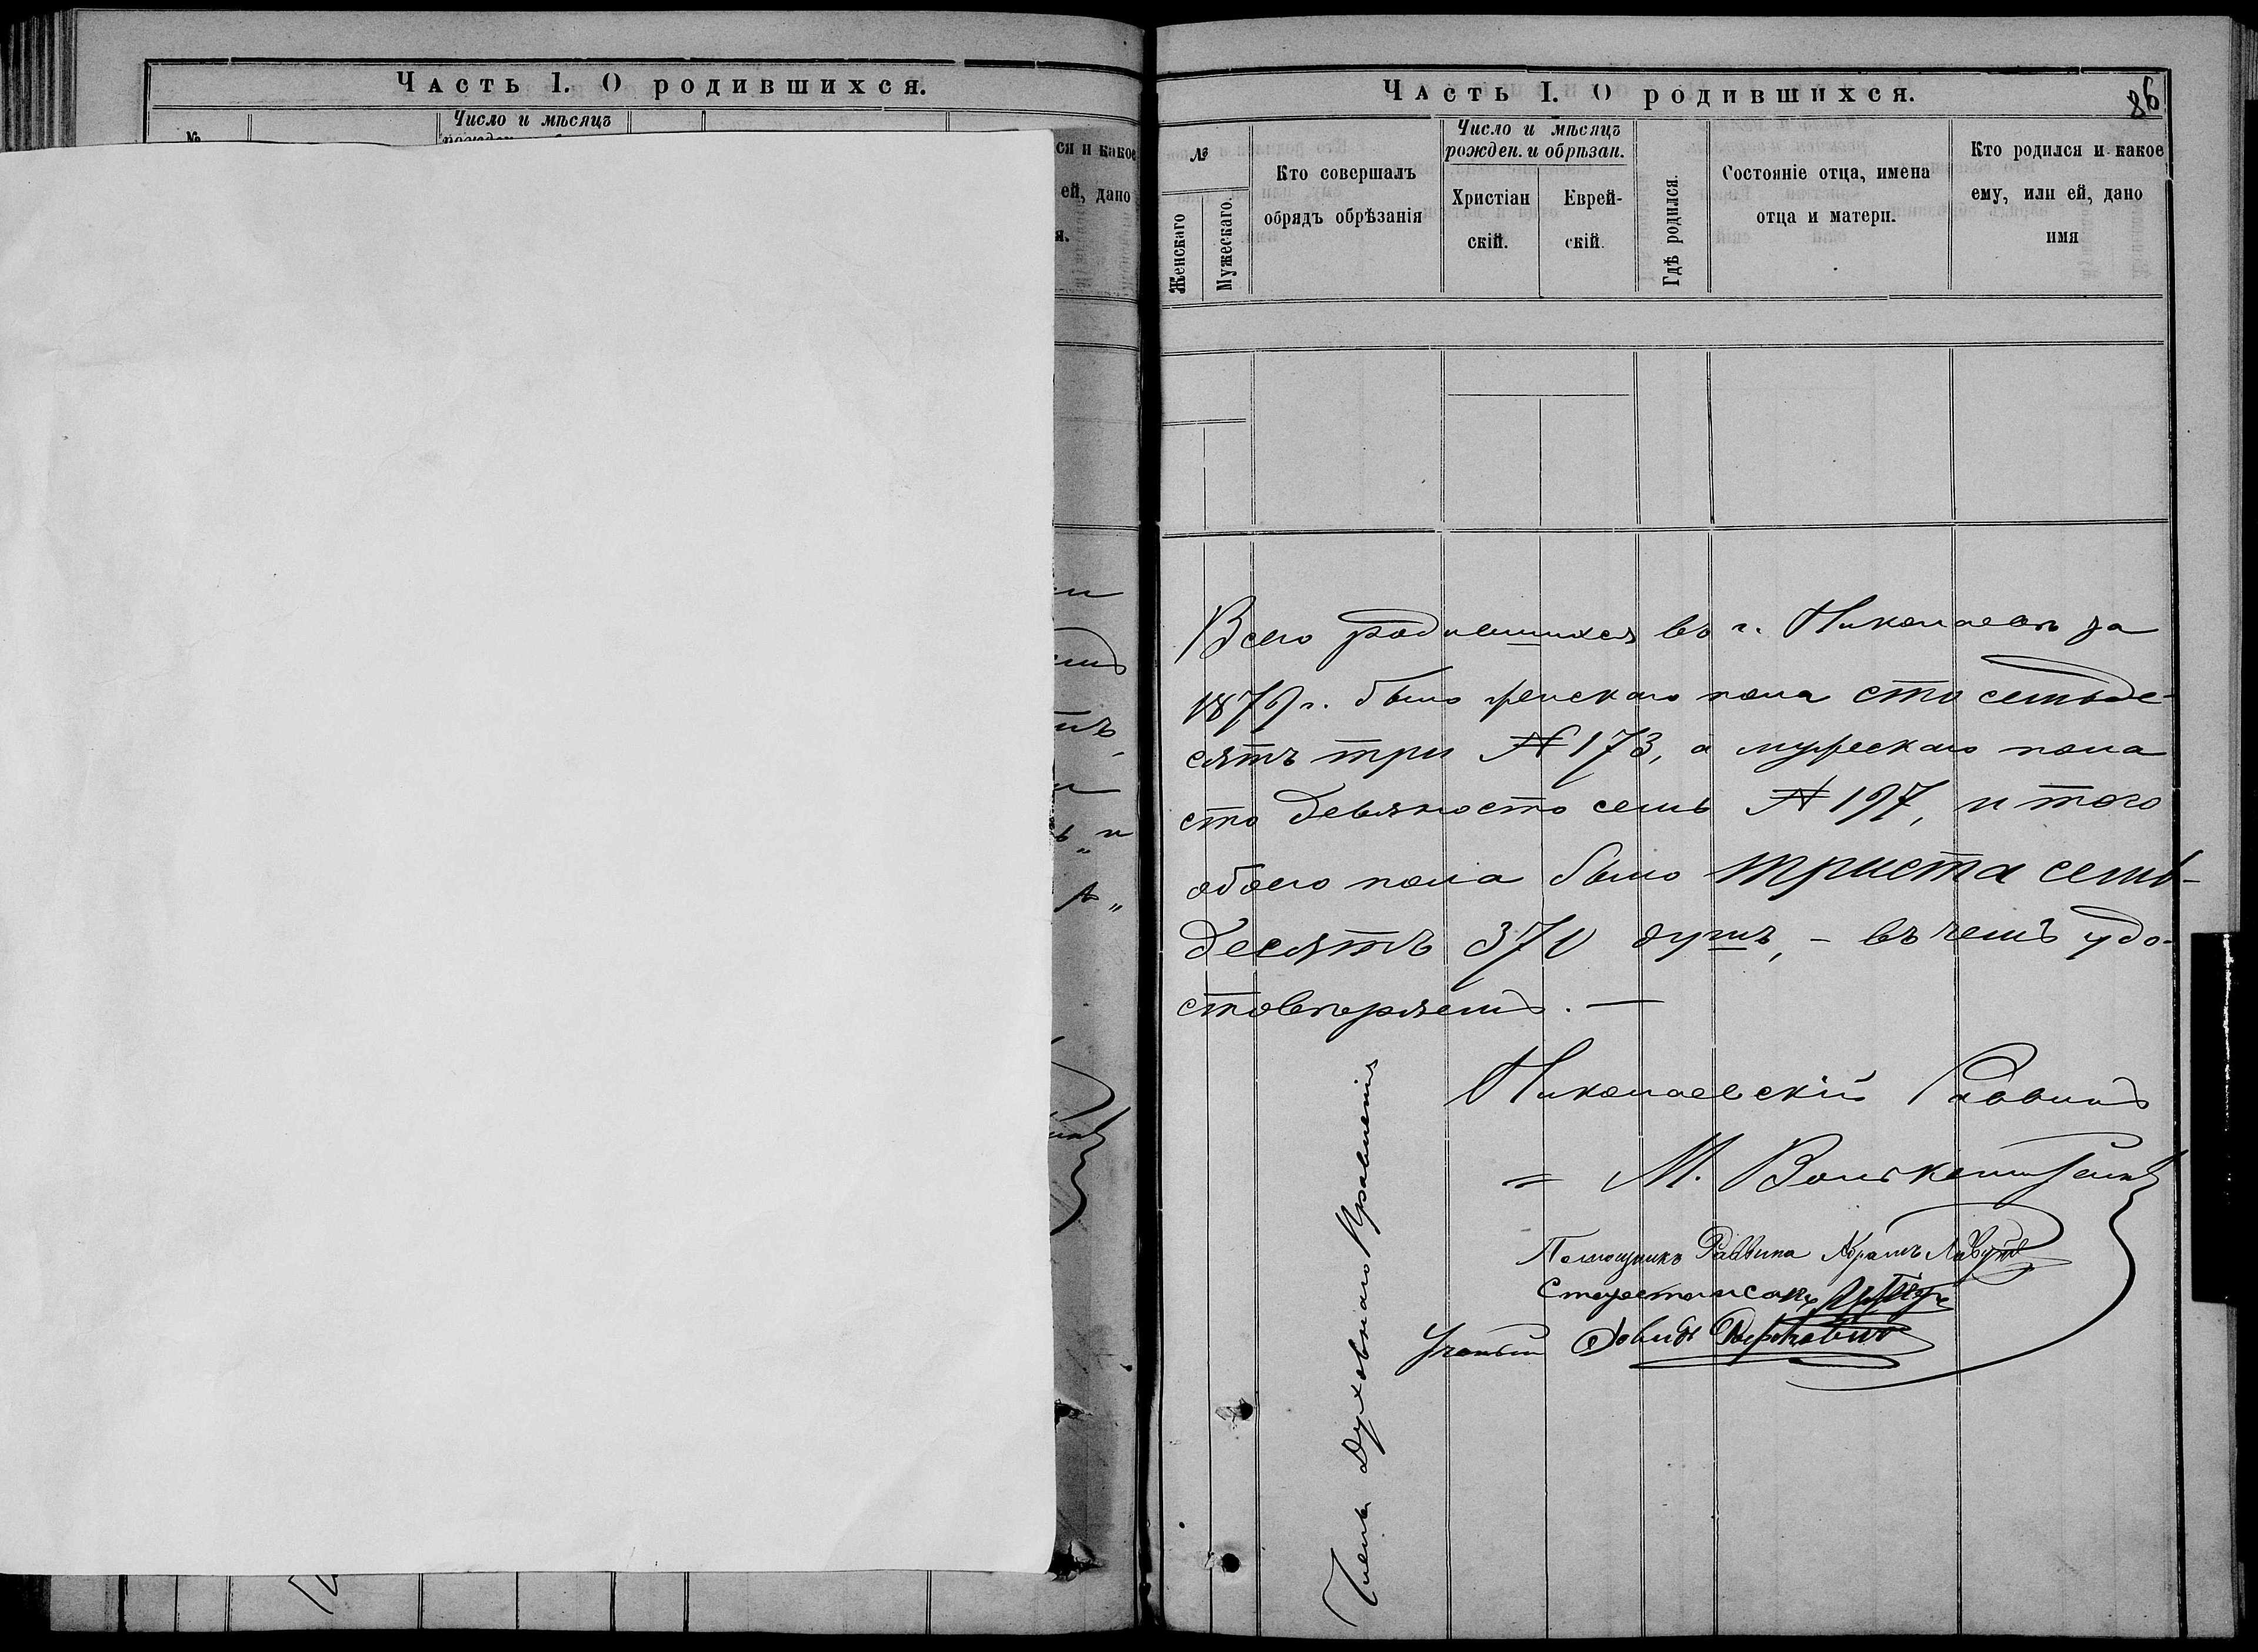 Часть 1. О родившихся.
№
Число и мѣсяцъ
ся и какое
ей, дано
я.
Часть I. О родившихся.
86
№
Женскаго
Мужескаго.
Кто совершалъ
обрядъ обрѣзанія
Число и мѣсяцъ
рожден. и обрѣзан.
Христіан
скій.
Еврей-
скій.
Гдѣ родился.
Состояніе отца, имена
отца и матери.
Кто родился и какое
ему, или ей, дано
имя
Всего родившихся въ г. Николаевѣ за
1879 г. было женскаго пола сто семьде-
сятъ три № 173, а мужескаго пола
сто девяносто семь № 197, итого
обоего пола было триста семь-
десятъ 370 душъ, – въ чемъ удо-
стовѣряемъ. —
Николаевскій Раввинъ
М.
Помощникъ Раввина Абрамъ
Староста Исакъ
Ученый Довидъ
Члены Духовнаго Правленія